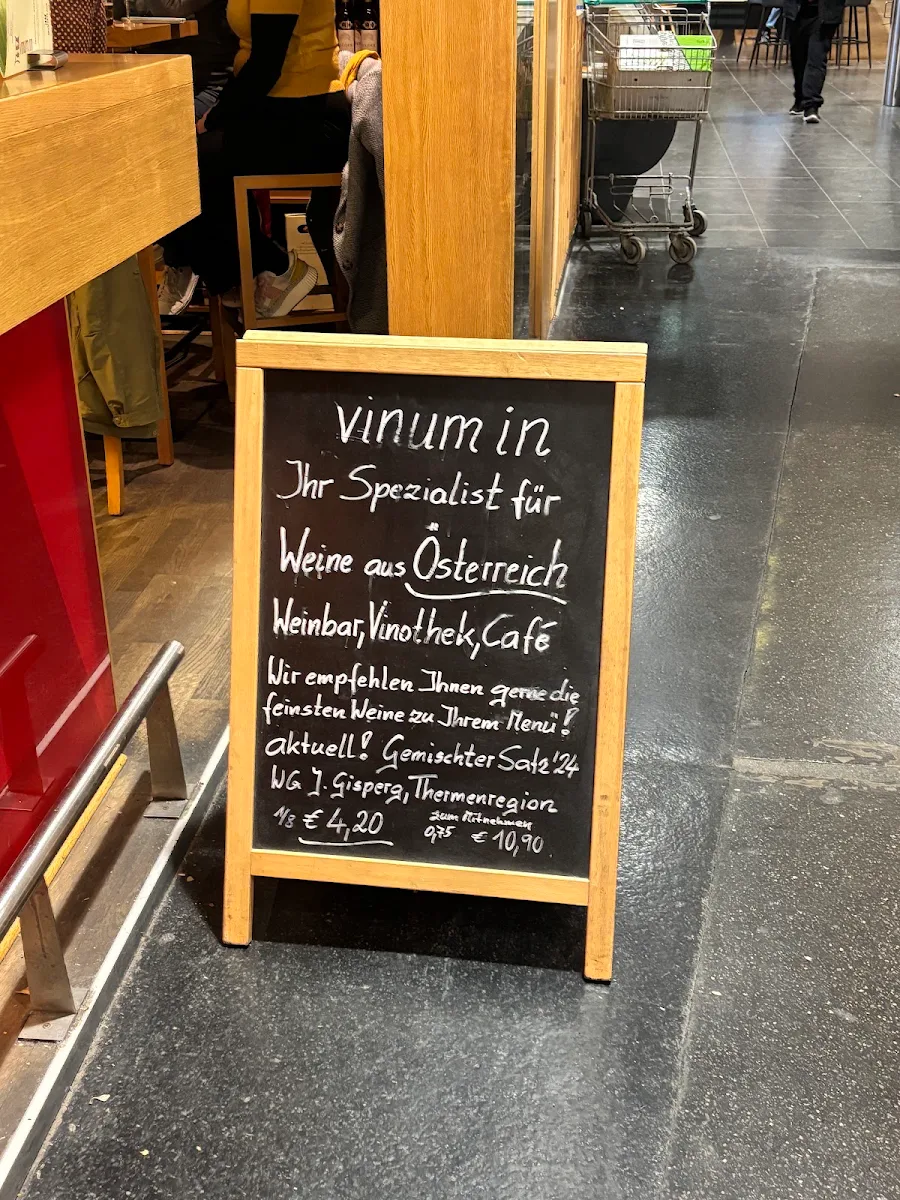 vinum in
Ihr Spezialist für
Weine aus Österreich
Weinbar, Vinothek, Café
Wir empfehlen Ihnen gerne die
feinsten Weine zu Ihrem Menü!
aktuell! Gemischter Satz '24
WG J. Gisperg, Thermenregion
1/8 € 4,20
zum Mitnehmen
0,75 € 10,90